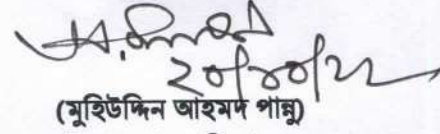 ২০/১০/২২
(মুহিউদ্দিন আহমদ পান্নু)